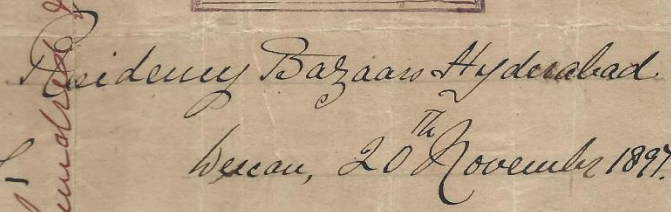 Residency Bazaars Hyderabad.
Deccan, 20th November 1897.